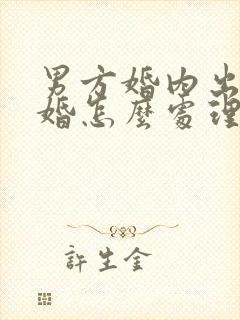 男方婚内出
婚怎麼處理
許生金